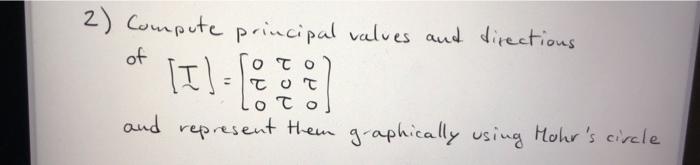 2) Compute principal values and directions
of [I] = [0 τ 0
τ 0 τ
0 τ 0]
and represent them graphically using Mohr's circle